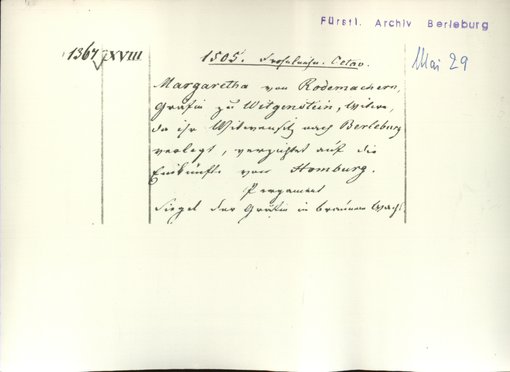 Fürstl. Archiv Berleburg
Mai 29
1367 XVIII
1505. Frohnleichn. Octav.
Margaretha von Rodemachern,
Gräfin zu Witgenstein, Witwe,
da ihr Witwensitz nach Berleburg
verlegt, verzichtet auf die
Einkünfte von Homburg.
Pergament
Siegel der Gräfin in braunem Wachs